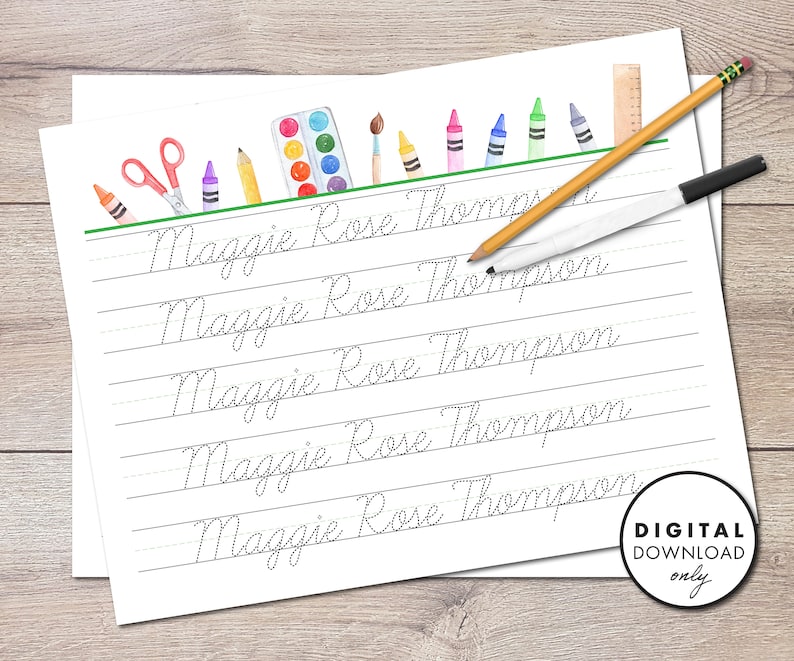 Maggie Rose Thompson
Maggie Rose Thompson
Maggie Rose Thompson
Maggie Rose Thompson
Maggie Rose Thompson
DIGITAL
DOWNLOAD
only